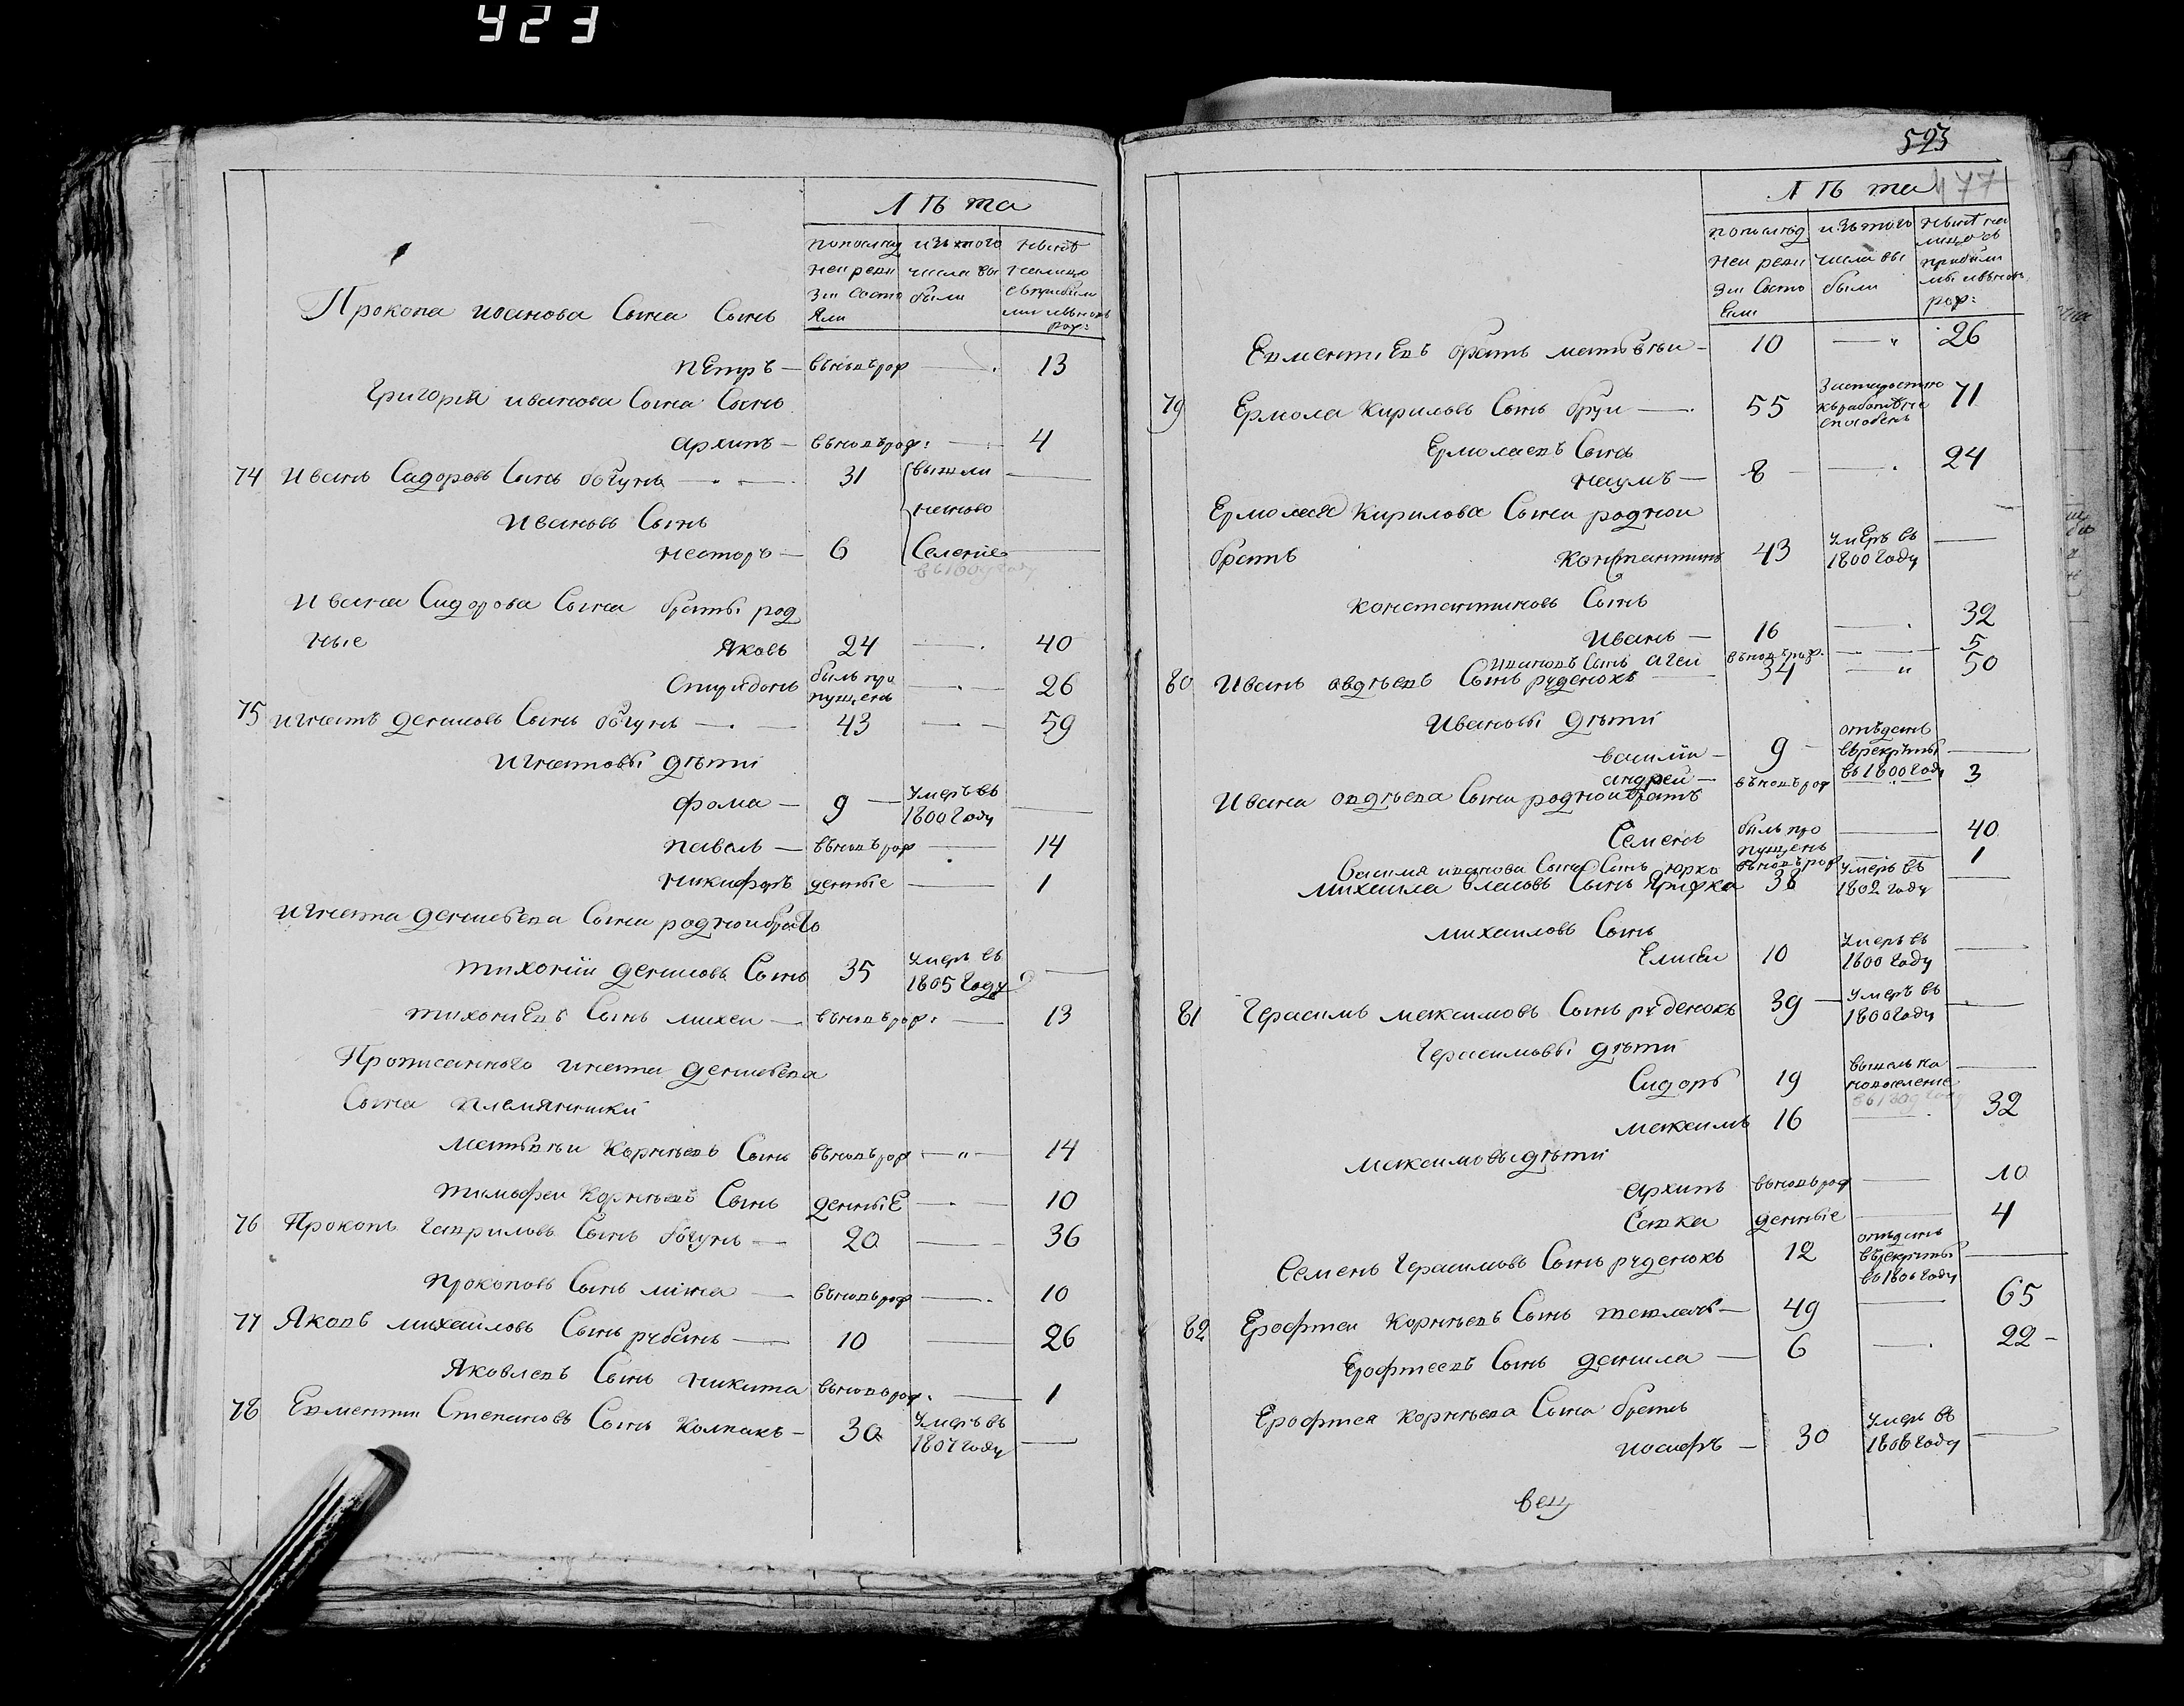 423
Лѣта
по послѣд ней реви зіи состо яли
изъ того числа вы были
нынѣ на лицо съ прибыл ми и вновь рож:
Прокопа иванова Сына Сынъ
пЕтръ — вновь рож — 13
Григорія иванова Сына Сынъ
архипъ — вновь рож: — 4
74 Иванъ Сидоровъ Сынъ богунъ — 31 вышли —
Ивановъ Сынъ на ново
несторъ — 6 Селение —
Ивана Сидорова Сына братьі род
ные Яковъ 24 — 40
Спиридонъ былъ про пущенъ — 26
75 игнатъ денисовъ Сынъ богунъ — 43 — 59
Игнатовьі дѣти
фома — 9 — умеръ въ 1800 году —
павелъ — вновь рож — 14
никифоръ денные — 1
игната денисьева Сына родной братъ
тихоній денисовъ Сынъ 35 умеръ въ 1805 году —
тихониЕвъ Сынъ михеи — вновь рож: — 13
Прописанного игната денисьева
Сына племянники
матвѣи корнѣевъ Сынъ вновь рож — 14
тимофеи корнѣевъ Сынъ денныЕ — 10
76 Прокопъ гавриловъ Сынъ богунъ — 20 — 36
прокоповъ Сынъ міна — вновь рож — 10
77 Яковъ михаиловъ Сынъ рубанъ — 10 — 26
Яковлевъ Сынъ никита вновь рож. — 1
78 Евментіи Степановъ Сынъ Колпакъ — 30 умеръ въ 1807 году —
523
477
Лѣта
по послѣд ней реви зіи Состо Ели
изъ того числа вы были
нынѣ на лицо съ прибыл ми и вновь рож:
ЕвментіЕвъ братъ матвѣи — 10 — " 26
79 Ермола Кириловъ Сынъ бруи — 55 За старостию къ работѣ не способенъ 71
Ермолаевъ Сынъ
наумъ — 8 — 24
Ермолая Кирилова Сына родной
братъ Константинъ 43 умЕръ въ 1800 году —
константиновъ Сынъ
Иванъ — 16 — 32
ивановъ Сынъ агеи вновь рож. — 5
80 Иванъ авдѣевъ Сынъ руденокъ — 34 — " 50
Ивановьі дѣти
василіи — 9 — отъданъ въ рекруты въ 1800 году —
андреи — вновь рож — 3
Ивана овдѣева Сына родной братъ
Семенъ былъ про пущенъ — 40
Василия иванова Сына Сынъ юрко вновь рож — 1
михаила власовъ Сынъ 38 умеръ въ 1802 году —
михаиловъ Сынъ
Елисеи 10 умеръ въ 1800 году —
81 Герасимъ максимовъ Сынъ руденокъ 39 — умеръ въ 1800 году —
Герасимовьі дѣти
Сидоръ 19 вышелъ на новоселение —
максимъ 16 — 32
максимовы дѣти
архипъ вновь рож — 10
Савка денные — 4
Семенъ Герасимовъ Сынъ руденокъ 12 отъданъ въ рекруты въ 1806 году —
82 Ерофтеи корнѣевъ Сынъ — 49 — 65
Ерофтеевъ Сынъ данила — 6 — 22 -
Ерофтея корнѣева Сына братъ
иосифъ — 30 умеръ въ 1806 году —